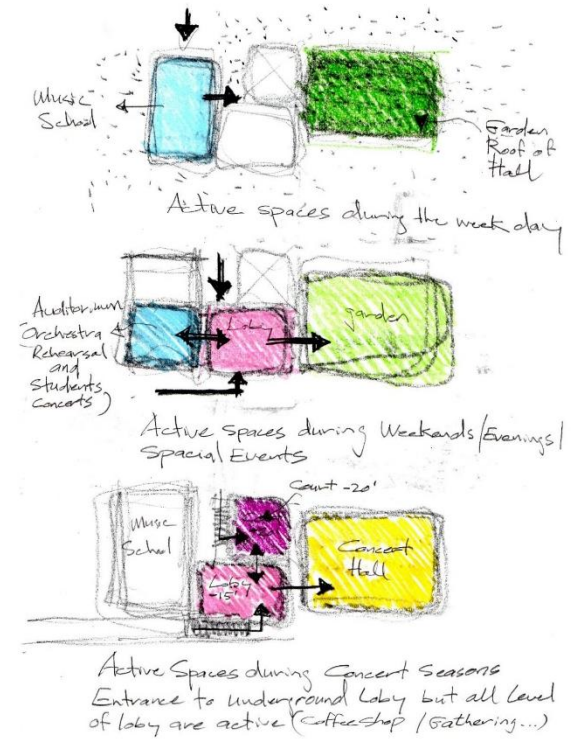 Music
School
Garden
Roof of
Hall
Active spaces during the week day
Auditorium
(Orchestra
Rehearsal
and
Students
Concerts)
Loby
garden
Active Spaces during Weekends/Evenings/
Spacial Events
Court -20'
Music
School
Loby
-15'
Concert
Hall
Active Spaces during Concert Seasons
Entrance to underground Loby but all Level
of loby are active (Coffee Shop / Gathering...)